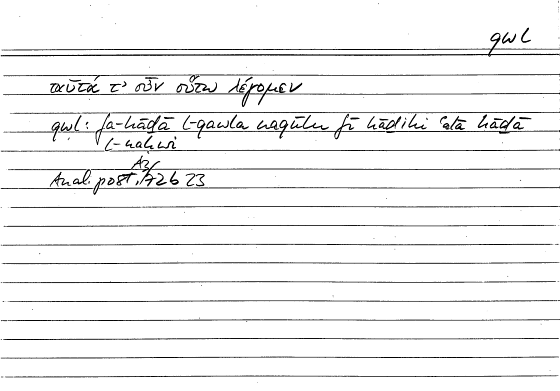 qwl
ταῦτά τ' οὖν οὕτω λέγομεν
qwl: fa-hāḏā l-qawla naqūlu fī hāḏihi ʿalā hāḏā
l-naḥwi
Ar
Anal. post. 72b 23